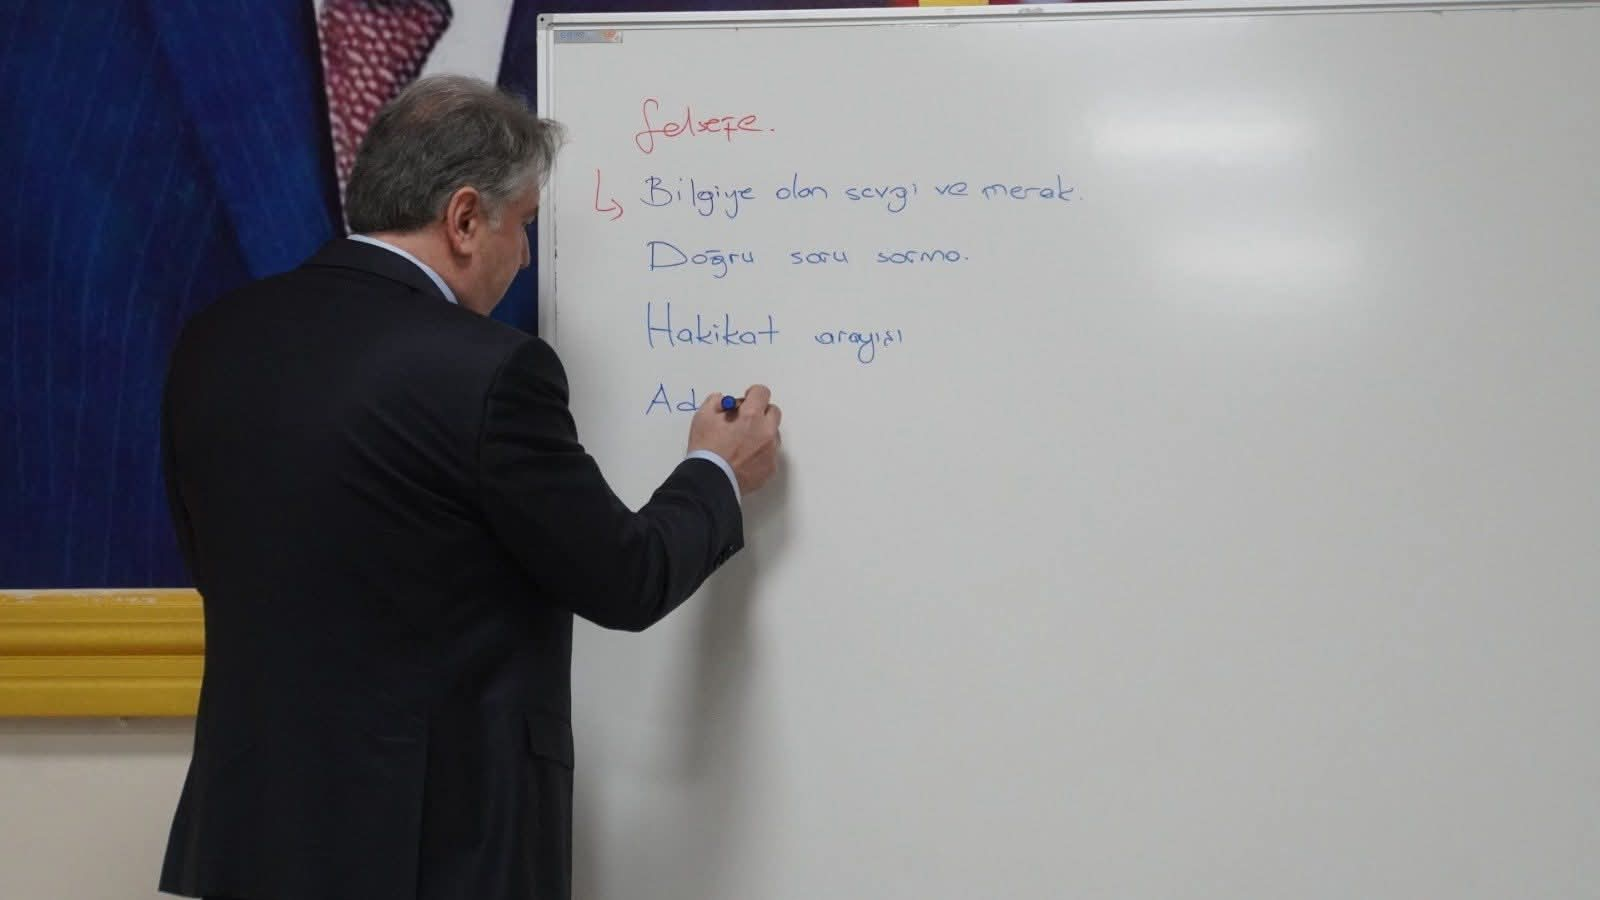 felsefe.
Bilgiye olan sevgi ve merak.
Doğru soru sorma.
Hakikat arayışı
Ad